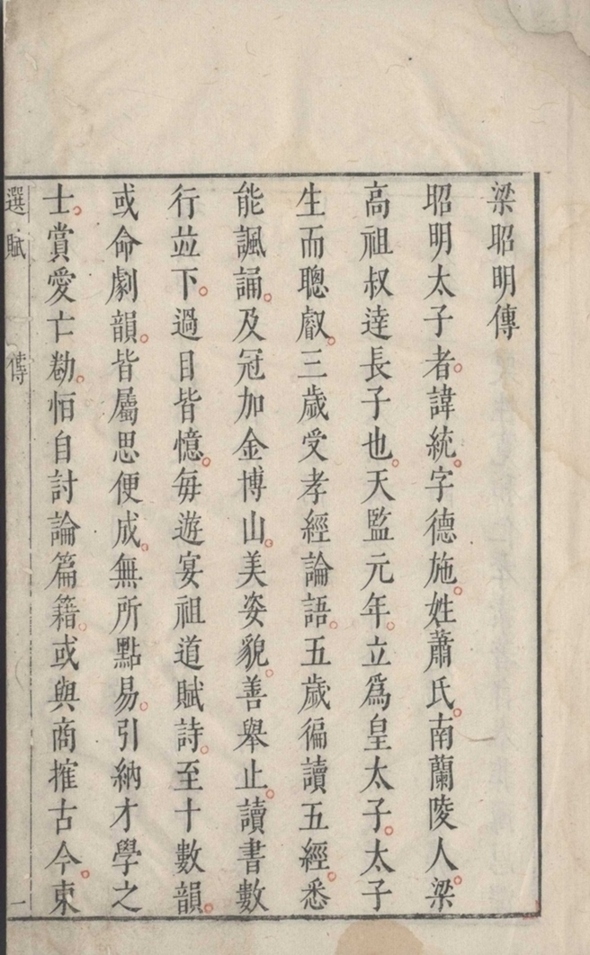 梁昭明傳
昭明太子者。諱統。字德施。姓蕭氏。南蘭陵人。梁
高祖叔達長子也。天監元年。立爲皇太子。太子
生而聰叡。三歲受孝經論語。五歲徧讀五經。悉
能諷誦。及冠加金博山。美姿貌。善舉止。讀書數
行並下。過目皆憶。每遊宴祖道賦詩。至十數韻。
或命劇韻。皆屬思便成。無所點易。引納才學之
士。賞愛亡勌。恒自討論篇籍。或與商搉古今。東
選賦 傳 一